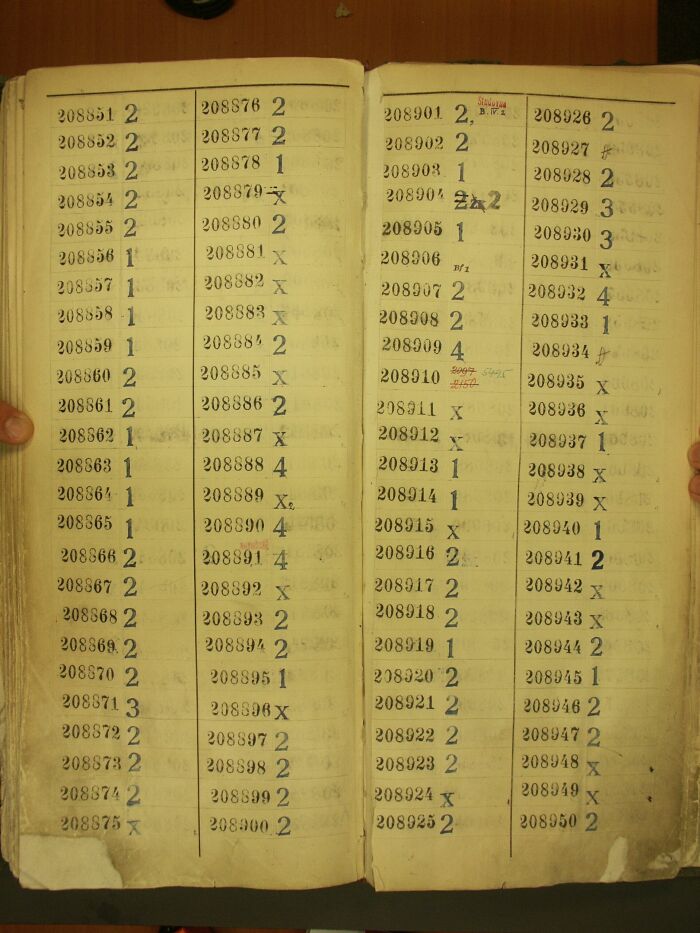 208851 2
208852 2
208853 2
208854 2
208855 2
208856 1
208857 1
208858 1
208859 1
208860 2
208861 2
208862 1
208863 1
208864 1
208865 1
208866 2
208867 2
208868 2
208869 2
208870 2
208871 3
208872 2
208873 2
208874 2
208875 x
208876 2
208877 2
208878 1
208879 x
208880 2
208881 x
208882 x
208883 x
208884 2
208885 x
208886 2
208887 x
208888 4
208889 x
208890 4
208891 4
208892 x
208893 2
208894 2
208895 1
208896 x
208897 2
208898 2
208899 2
208900 2
208901 2,
B. IV. 2
208902 2
208903 1
208904 2
208905 1
208906
208907 2
208908 2
208909 4
208910 2097
2150
208911 x
208912 x
208913 1
208914 1
208915 x
208916 2
208917 2
208918 2
208919 1
208920 2
208921 2
208922 2
208923 2
208924 x
208925 2
208926 2
208927
208928 2
208929 3
208930 3
208931 x
208932 4
208933 1
208934
208935 x
208936 x
208937 1
208938 x
208939 x
208940 1
208941 2
208942 x
208943 x
208944 2
208945 1
208946 2
208947 2
208948 x
208949 x
208950 2